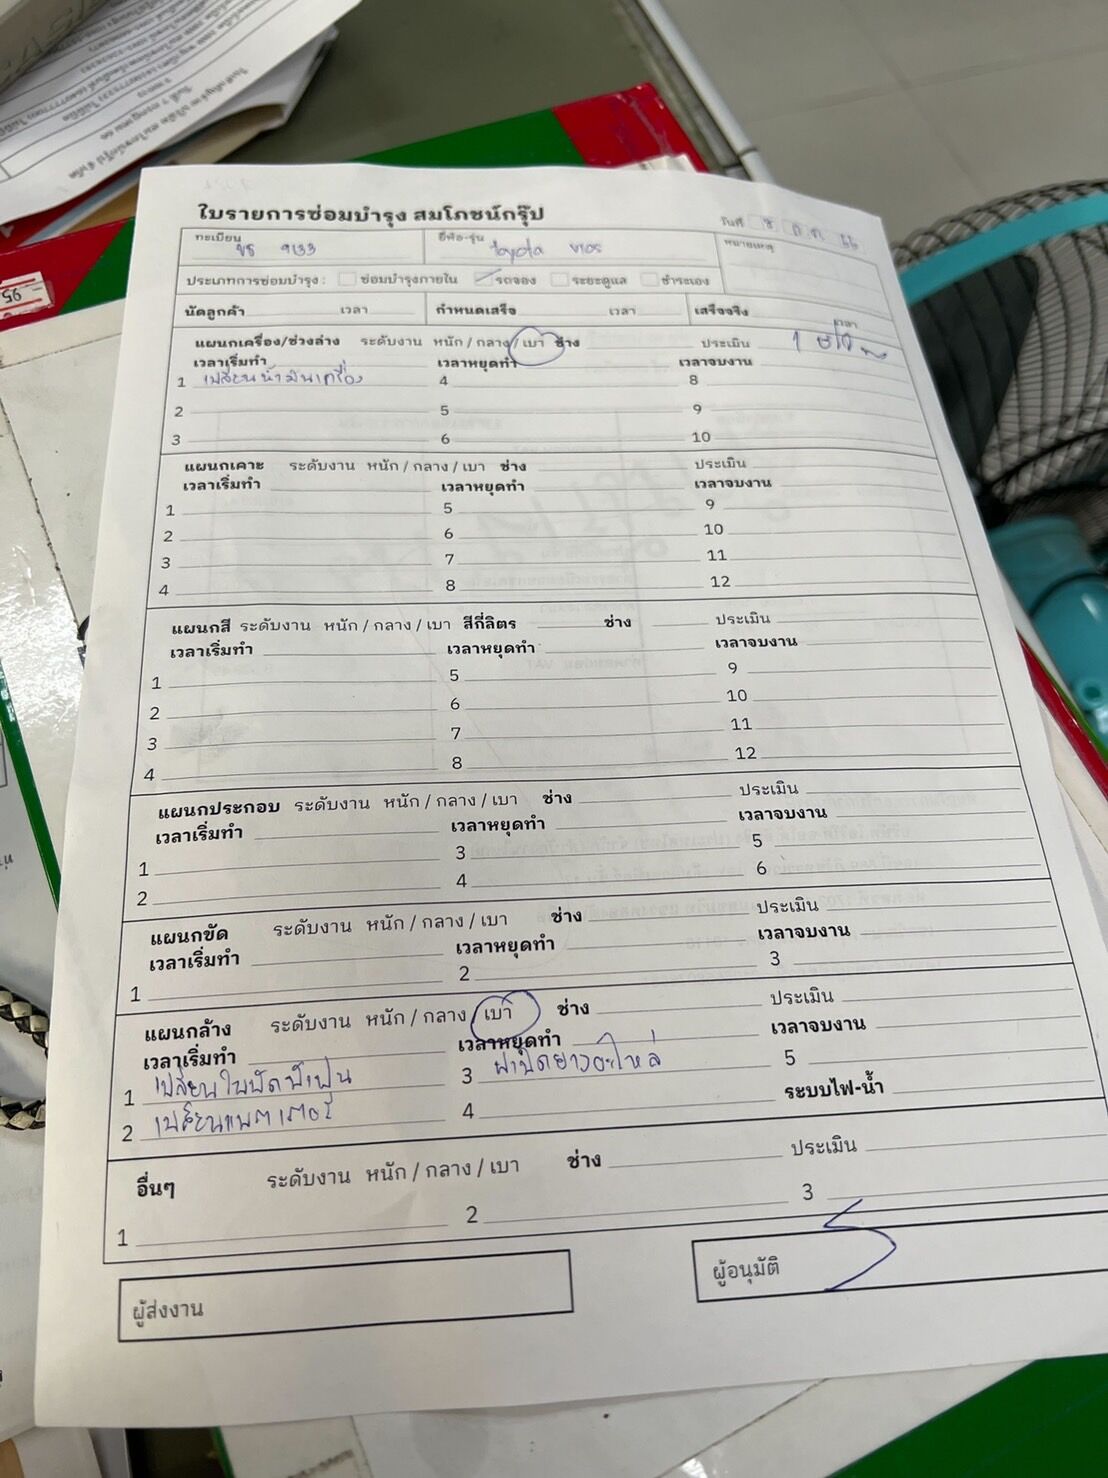 ใบรายการซ่อมบำรุง สมโภชน์กรุ๊ป
วันที่ 8 ก.ค. 66
ทะเบียน 9133 ยี่ห้อ-รุ่น toyota vios หมายเหตุ
ประเภทการซ่อมบำรุง : ซ่อมบำรุงภายใน รถจอง ระยะดูแล ชำระเอง
นัดลูกค้า เวลา กำหนดเสร็จ เวลา เสร็จจริง เวลา
แผนกเครื่อง/ช่วงล่าง ระดับงาน หนัก / กลาง / เบา ช่าง ประเมิน 1
เวลาเริ่มทำ เวลาหยุดทำ เวลาจบงาน
1 เปลี่ยนน้ำมันเครื่อง 4 8
2 5 9
3 6 10
แผนกเคาะ ระดับงาน หนัก / กลาง / เบา ช่าง ประเมิน
เวลาเริ่มทำ เวลาหยุดทำ เวลาจบงาน
1 5 9
2 6 10
3 7 11
4 8 12
แผนกสี ระดับงาน หนัก / กลาง / เบา สีกี่ลิตร ช่าง ประเมิน
เวลาเริ่มทำ เวลาหยุดทำ เวลาจบงาน
1 5 9
2 6 10
3 7 11
4 8 12
แผนกประกอบ ระดับงาน หนัก / กลาง / เบา ช่าง ประเมิน
เวลาเริ่มทำ เวลาหยุดทำ เวลาจบงาน
1 3 5
2 4 6
แผนกขัด ระดับงาน หนัก / กลาง / เบา ช่าง ประเมิน
เวลาเริ่มทำ เวลาหยุดทำ เวลาจบงาน
1 2 3
แผนกล้าง ระดับงาน หนัก / กลาง / เบา ช่าง ประเมิน
เวลาเริ่มทำ เวลาหยุดทำ เวลาจบงาน
1 เปลี่ยนใบปัดน้ำฝน 3 ฝาปิดยางอะไหล่ 5
2 เปลี่ยนแบตเตอรี่ 4 ระบบไฟ-น้ำ
อื่นๆ ระดับงาน หนัก / กลาง / เบา ช่าง ประเมิน
1 2 3
ผู้ส่งงาน ผู้อนุมัติ